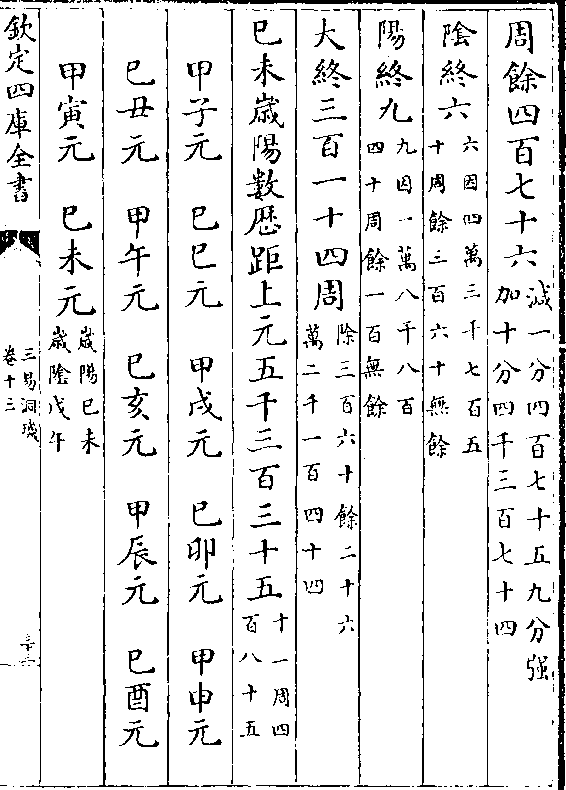 周餘四百七十六減一分四百七十五九分强
加十分四千三百七十四
陰終六六因四萬三千七百五
十周餘三百六十無餘
陽終九九因一萬八千八百
四十周餘一百無餘
大終三百一十四周除三百六十餘二十六
萬二千一百四十四
巳未歲陽數歷距上元五千三百三十五十一周四
百八十五
甲子元　巳巳元　甲戌元　巳卯元　甲申元
巳丑元　甲午元　巳亥元　甲辰元　巳酉元
甲寅元　巳未元歲陽巳未
歲陰戊午
欽定四庫全書
三易洞璣
卷十三